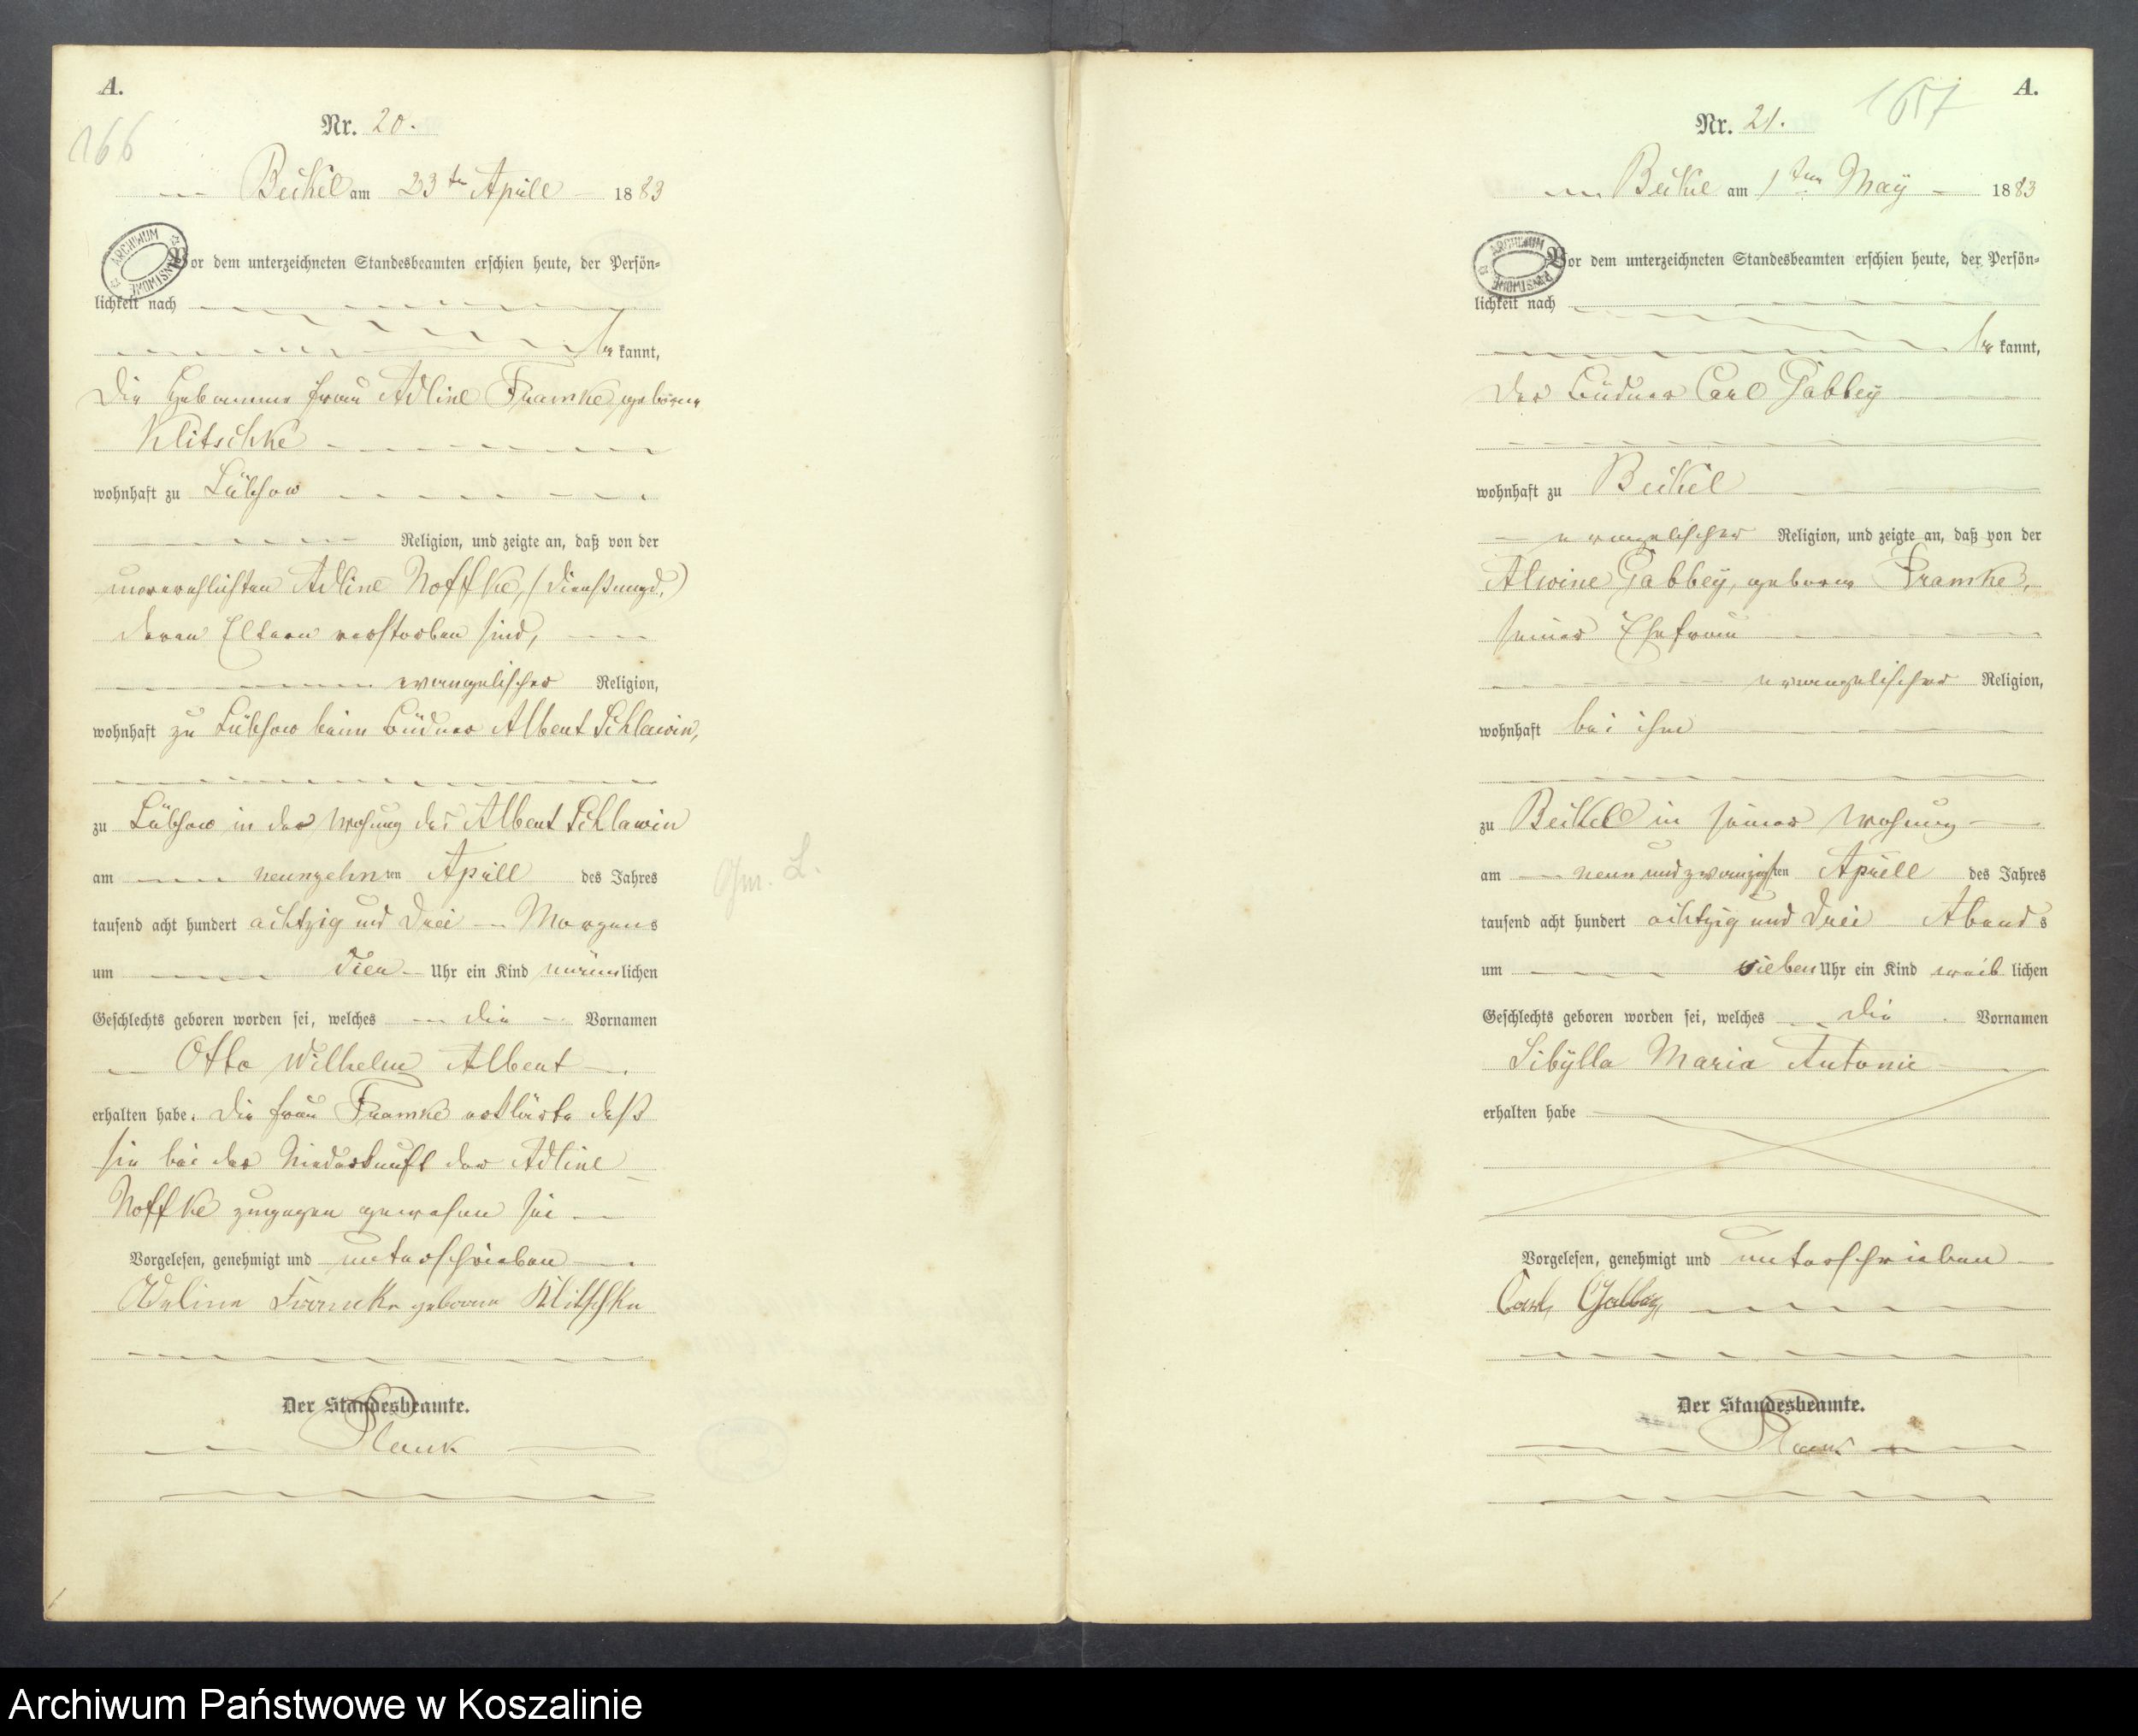 A.
166
Nr. 20.
Beikel am 23ten Aprill 1883
ARCHIWUM PAŃSTWOWE
Vor dem unterzeichneten Standesbeamten erschien heute, der Persön=
lichkeit nach
be kannt,
die Hebamme Frau Adline Framke, geborne
Klitschke
wohnhaft zu Lübsow
Religion, und zeigte an, daß von der
unverehlichten Adline Noffke, (Dienstmagd,)
deren Eltern verstorben sind,
evangelischer Religion,
wohnhaft zu Lübsow beim Büdner Albert Schlawin,
zu Lübsow in der Wohnung des Albert Schlawin
am neunzehnten Aprill des Jahres
tausend acht hundert achtzig und drei Morgens
um vier Uhr ein Kind männlichen
Geschlechts geboren worden sei, welches die Vornamen
Otto Wilhelm Albert
erhalten habe. Die Frau Framke erklärte daß
sie bei der Niederkunft der Adline
Noffke zugegen gewesen sei
Vorgelesen, genehmigt und unterschrieben
Adeline Framke geborne Klitschke
Der Standesbeamte.
Plank
A.
Nr. 21.
Beikel am 1ten May 1883
ARCHIWUM PAŃSTWOWE
Vor dem unterzeichneten Standesbeamten erschien heute, der Persön=
lichkeit nach
be kannt,
der Büdner Carl Gabbey
wohnhaft zu Beikel
evangelischer Religion, und zeigte an, daß von der
Alwine Gabbey, geborne Framke,
seiner Ehefrau
evangelischer Religion,
wohnhaft bei ihm
zu Beikel in seiner Wohnung
am neun und zwanzigsten Aprill des Jahres
tausend acht hundert achtzig und drei Abends
um sieben Uhr ein Kind weiblichen
Geschlechts geboren worden sei, welches die Vornamen
Sibÿlla Maria Antonie
erhalten habe
Vorgelesen, genehmigt und unterschrieben
Carl Gabbey
Der Standesbeamte.
Plank
Archiwum Państwowe w Koszalinie